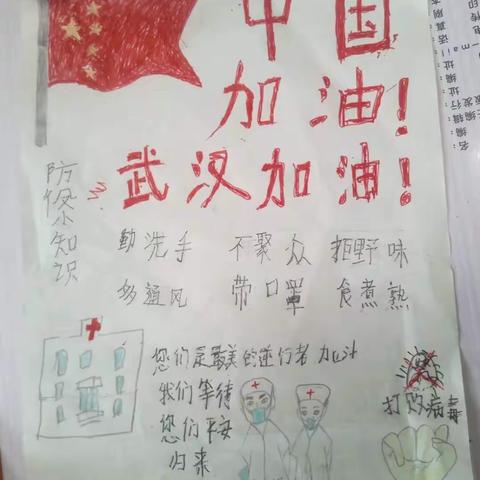 中国
加油!
武汉加油!
防疫小知识
勤洗手 不聚众 拒野味
多通风 带口罩 食煮熟
您们是最美的逆行者 加油
我们等待
您们平安
归来
打败病毒